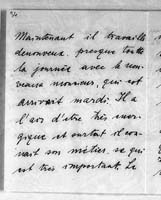 Maintenant il travaille
denouveux. presque toute
la journée avec le nou-
veaux monsieur, qui est
arrivait mardi. Il a
l'air d'être très éner-
gique et surtout il con-
nait son métier, se qui
est très important. Le